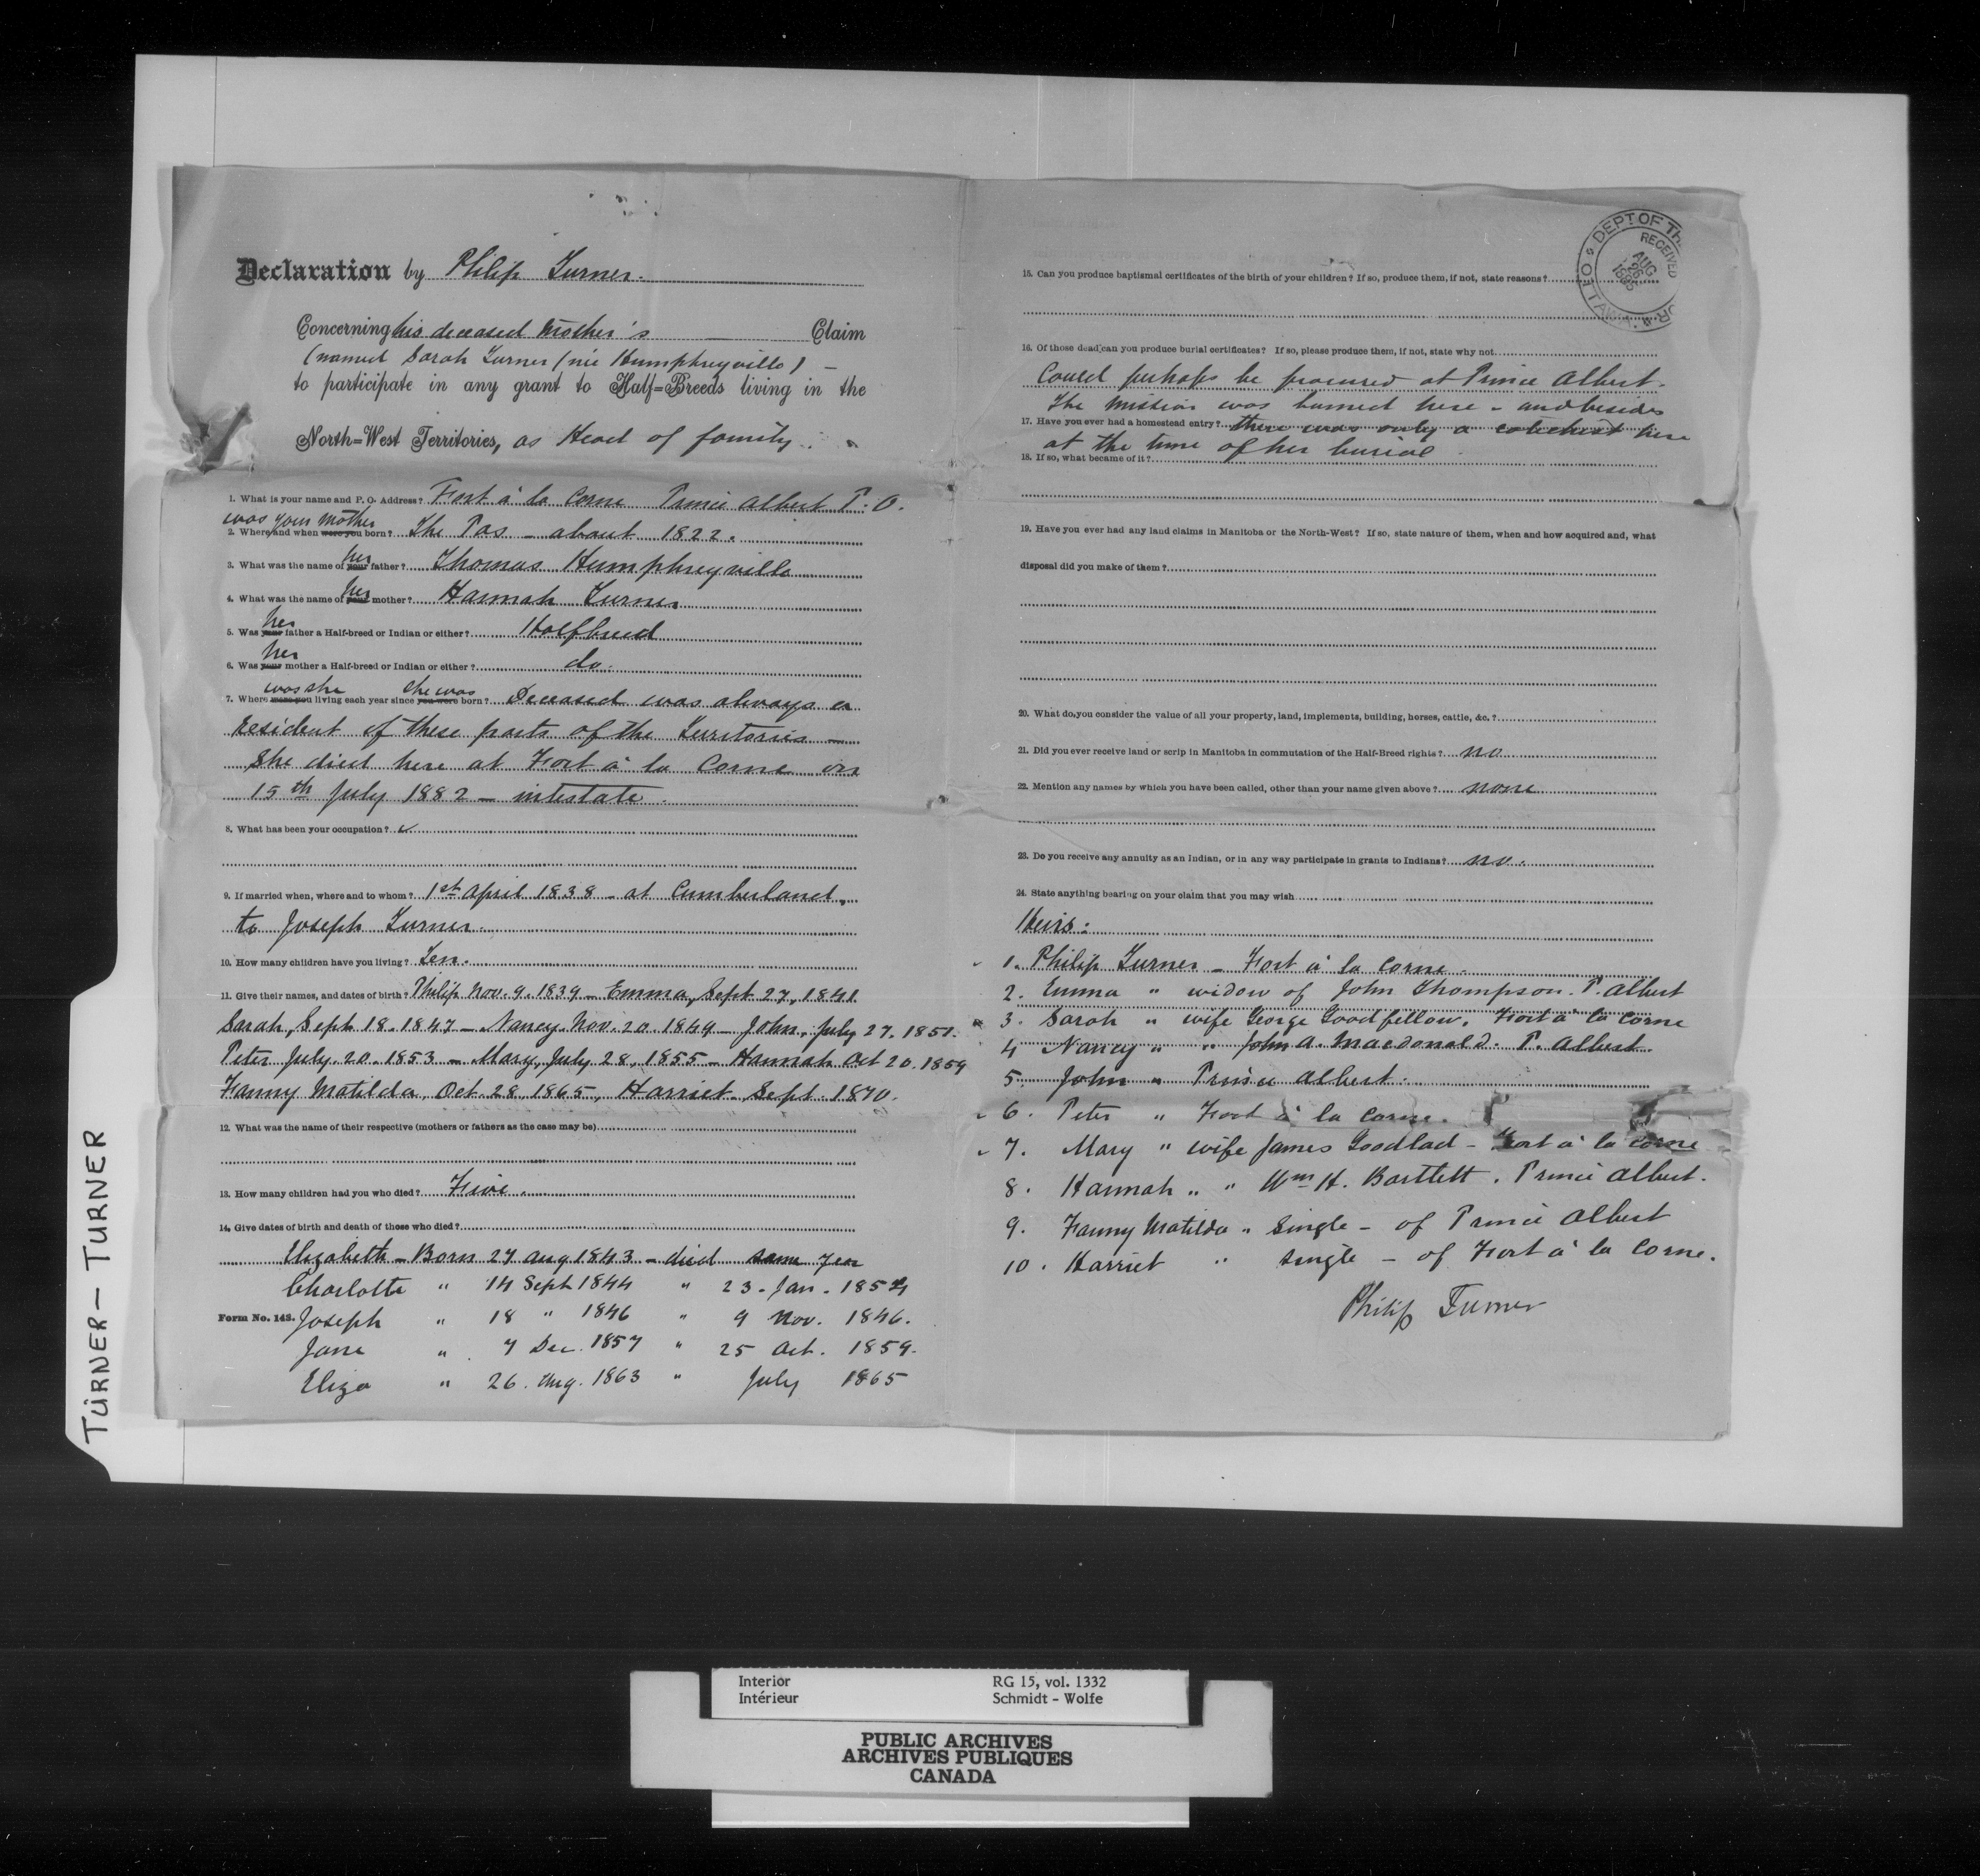 Declaration by Philip Turner.
Concerning his deceased Mother's Claim
(named Sarah Turner (née Humphreyville) —
to participate in any grant to Half=Breeds living in the
North=West Territories, as Head of family.
1. What is your name and P. O. Address? Fort à la Corne Prince Albert P. O.
was your mother
2. Where and when were you born? The Pas - about 1822.
her
3. What was the name of your father? Thomas Humphreyville
her
4. What was the name of your mother? Hannah Turner
her
5. Was your father a Half-breed or Indian or either? Halfbreed
her
6. Was your mother a Half-breed or Indian or either? do.
was she she was
7. Where were you living each year since you were born? Deceased was always a
resident of these parts of the Territories —
She died here at Fort à la Corne on
15th July 1882 — intestate.
8. What has been your occupation?
9. If married when, where and to whom? 1st April 1838 - at Cumberland,
to Joseph Turner.
10. How many children have you living? Ten.
11. Give their names, and dates of birth? Philip Nov. 9. 1839 - Emma, Sept 27, 1841
Sarah, Sept 18. 1847 - Nancy Nov. 20. 1849 - John, July 27. 1851.
Peter July. 20. 1853 - Mary, July 28, 1855 - Hannah Oct 20. 1859
Fanny Matilda, Oct. 28, 1865, Harriet. Sept. 1870.
12. What was the name of their respective (mothers or fathers as the case may be)
13. How many children had you who died? Five.
14. Give dates of birth and death of those who died?
Elizabeth - Born 27 Aug 1843 - died same year
Charlotte " 14 Sept 1844 " 23. Jan. 1854
Form No. 143. Joseph " 18 " 1846 " 9 Nov. 1846.
Jane " 7 Dec. 1857 " 25 Oct. 1859.
Eliza " 26. Aug. 1863 " July 1865
15. Can you produce baptismal certificates of the birth of your children? If so, produce them, if not, state reasons?
16. Of those dead can you produce burial certificates? If so, please produce them, if not, state why not
Could perhaps be procured at Prince Albert.
The mission was burned here - and besides
17. Have you ever had a homestead entry? there was only a catechist here
at the time of her burial
18. If so, what became of it?
19. Have you ever had any land claims in Manitoba or the North-West? If so, state nature of them, when and how acquired and, what
disposal did you make of them?
20. What do you consider the value of all your property, land, implements, building, horses, cattle, &c.?
21. Did you ever receive land or scrip in Manitoba in commutation of the Half-Breed rights? no
22. Mention any names by which you have been called, other than your name given above? none
23. Do you receive any annuity as an Indian, or in any way participate in grants to Indians? no.
24. State anything bearing on your claim that you may wish
Heirs:
1. Philip Turner - Fort à la Corne.
2. Emma " widow of John Thompson. P. Albert
3. Sarah " wife George Goodfellow. Fort à la Corne
4 Nancy " " John A. Macdonald. P. Albert.
5 John " Prince Albert.
6. Peter " Fort à la Corne.
7. Mary " wife James Goodlad - Fort à la Corne
8. Hannah " " Wm H. Bartlett. Prince Albert.
9. Fanny Matilda " Single - of Prince Albert
10. Harriet " single - of Fort à la Corne.
Philip Turner
DEPT OF TH
RECEIVED
AUG
OTTAWA
TURNER - TURNER
Interior RG 15, vol. 1332
Intérieur Schmidt - Wolfe
PUBLIC ARCHIVES
ARCHIVES PUBLIQUES
CANADA